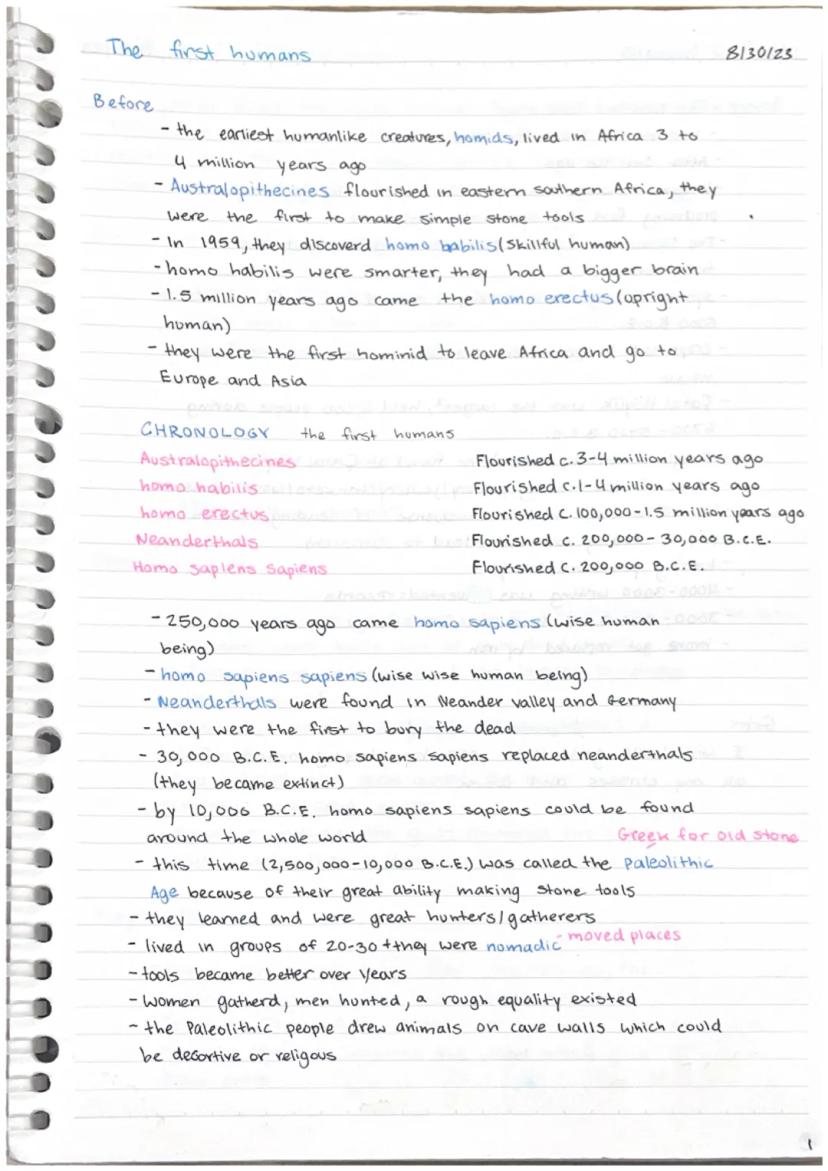 The first humans 8/30/23
Before
- the earliest humanlike creatures, homids, lived in Africa 3 to
4 million years ago
- Australopithecines flourished in eastern southern Africa, they
were the first to make simple stone tools
- In 1959, they discoverd homo babilis (skillful human)
- homo habilis were smarter, they had a bigger brain
- 1.5 million years ago came the homo erectus (upright
human)
- they were the first hominid to leave Africa and go to
Europe and Asia
CHRONOLOGY the first humans
Australopithecines Flourished c. 3-4 million years ago
homo habilis Flourished c. 1-4 million years ago
homo erectus Flourished c. 100,000-1.5 million years ago
Neanderthals Flourished c. 200,000-30,000 B.C.E.
Homo sapiens sapiens Flourished c. 200,000 B.C.E.
- 250,000 years ago came homo sapiens (wise human
being)
- homo sapiens sapiens (wise wise human being)
- Neanderthals were found in Neander valley and Germany
- they were the first to bury the dead
- 30,000 B.C.E. homo sapiens sapiens replaced neanderthals
(they became extinct)
- by 10,000 B.C.E. homo sapiens sapiens could be found
around the whole world Greek for old stone
- this time (2,500,000-10,000 B.C.E.) was called the Paleolithic
Age because of their great ability making stone tools
- they learned and were great hunters/gatherers
- lived in groups of 20-30 + they were nomadic - moved places
- tools became better over years
- women gatherd, men hunted, a rough equality existed
- the Paleolithic people drew animals on cave walls which could
be decortive or religous
1